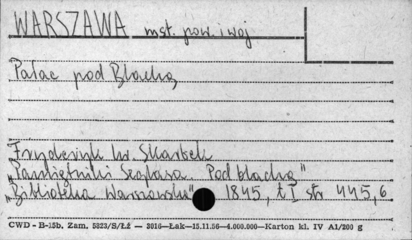 WARSZAWA mst. pow. i woj
Pałac pod Blachą
Fryderyk hr. Skarbek
"Pamiętniki Seglasa. Pod blachą"
"Biblioteka Warszawska" 1845, t. I str 445,6
CWD - B-15b. Zam. 5323/S/Łż — 3016—Łak—15.11.56—4.000.000—Karton kl. IV A1/200 g